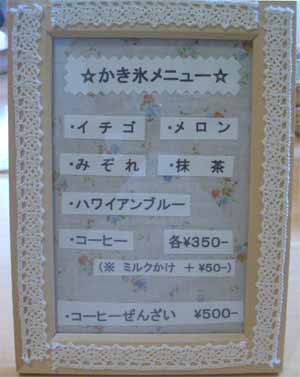 ☆かき氷メニュー☆
・イチゴ ・メロン
・みぞれ ・抹茶
・ハワイアンブルー
・コーヒー 各¥350-
(※ ミルクかけ +¥50-)
・コーヒーぜんざい ¥500-